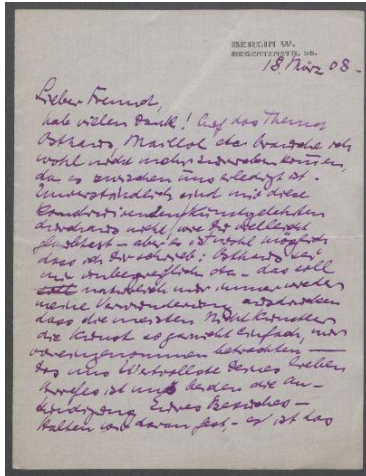 BERLIN W.
18 März 08.
Lieber Freund,
hab vielen Dank! Auf das Thema
Osthaus, Maillol etc brauche ich
wohl nicht mehr zu
da es zwischen uns erledigt ist.
Unverständlich sind mir diese
durchaus nicht, wie Du vielleicht
glaubtest – aber es ist wohl möglich
dass ich Dir schrieb: Osthaus sei
mir unbegreiflich etc – das soll
natürlich nur immer wieder
meine Verwunderung ausdrücken
dass die meisten Nicht Künstler
die Kunst so garnicht einfach, nur
voreingenommen betrachten –
Das uns Wertvollste Deines lieben
Briefes ist uns beiden die An-
kündigung Eures Besuches –
Halten wir daran fest, – es ist das